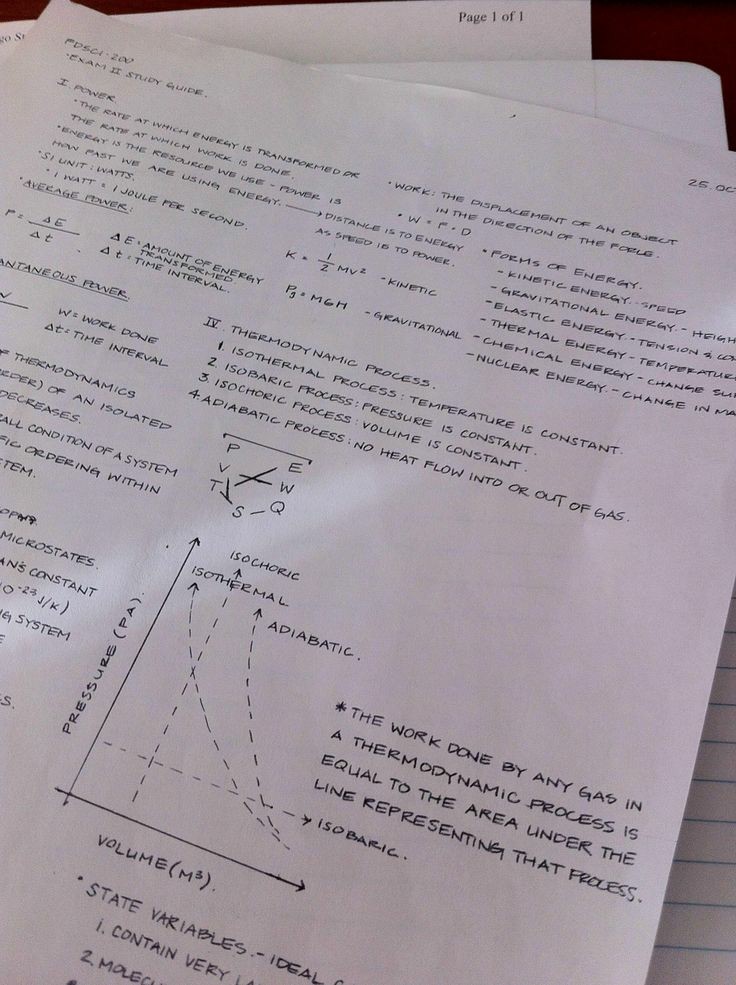 Page 1 of 1
25.OCT
FDSCI-200
·EXAM II STUDY GUIDE.
I. POWER
·THE RATE AT WHICH ENERGY IS TRANSFORMED OR
THE RATE AT WHICH WORK IS DONE.
·ENERGY IS THE RESOURCE WE USE - POWER IS
HOW FAST WE ARE USING ENERGY. → DISTANCE IS TO ENERGY
AS SPEED IS TO POWER.
·SI UNIT: WATTS.
·1 WATT = 1 JOULE PER SECOND.
·AVERAGE POWER:
P = ΔE
Δt
ΔE = AMOUNT OF ENERGY
TRANSFORMED.
Δt = TIME INTERVAL.
ANTANEOUS POWER.
W = WORK DONE
Δt = TIME INTERVAL
OF THERMODYNAMICS
RDER) OF AN ISOLATED
DECREASES.
ALL CONDITION OF A SYSTEM
FIC ORDERING WITHIN
STEM.
MICROSTATES.
AN'S CONSTANT
10⁻²³ J/K)
NG SYSTEM
·WORK: THE DISPLACEMENT OF AN OBJECT
IN THE DIRECTION OF THE FORCE.
·W = F·D
K = 1/2 MV² - KINETIC
Pg = MGH - GRAVITATIONAL
·FORMS OF ENERGY.
- KINETIC ENERGY - SPEED
- GRAVITATIONAL ENERGY - HEIGH
- ELASTIC ENERGY - TENSION & CO
- THERMAL ENERGY - TEMPERATUR
- CHEMICAL ENERGY - CHANGE SU
- NUCLEAR ENERGY - CHANGE IN MA
IV. THERMODYNAMIC PROCESS.
1. ISOTHERMAL PROCESS: TEMPERATURE IS CONSTANT.
2. ISOBARIC PROCESS: PRESSURE IS CONSTANT.
3. ISOCHORIC PROCESS: VOLUME IS CONSTANT.
4. ADIABATIC PROCESS: NO HEAT FLOW INTO OR OUT OF GAS.
P
V E
T W
S - Q
ISOCHORIC
ISOTHERMAL
ADIABATIC.
PRESSURE (PA).
ISOBARIC.
VOLUME (M³).
*THE WORK DONE BY ANY GAS IN
A THERMODYNAMIC PROCESS IS
EQUAL TO THE AREA UNDER THE
LINE REPRESENTING THAT PROCESS.
·STATE VARIABLES. - IDEAL
1. CONTAIN VERY
2. MOLEC